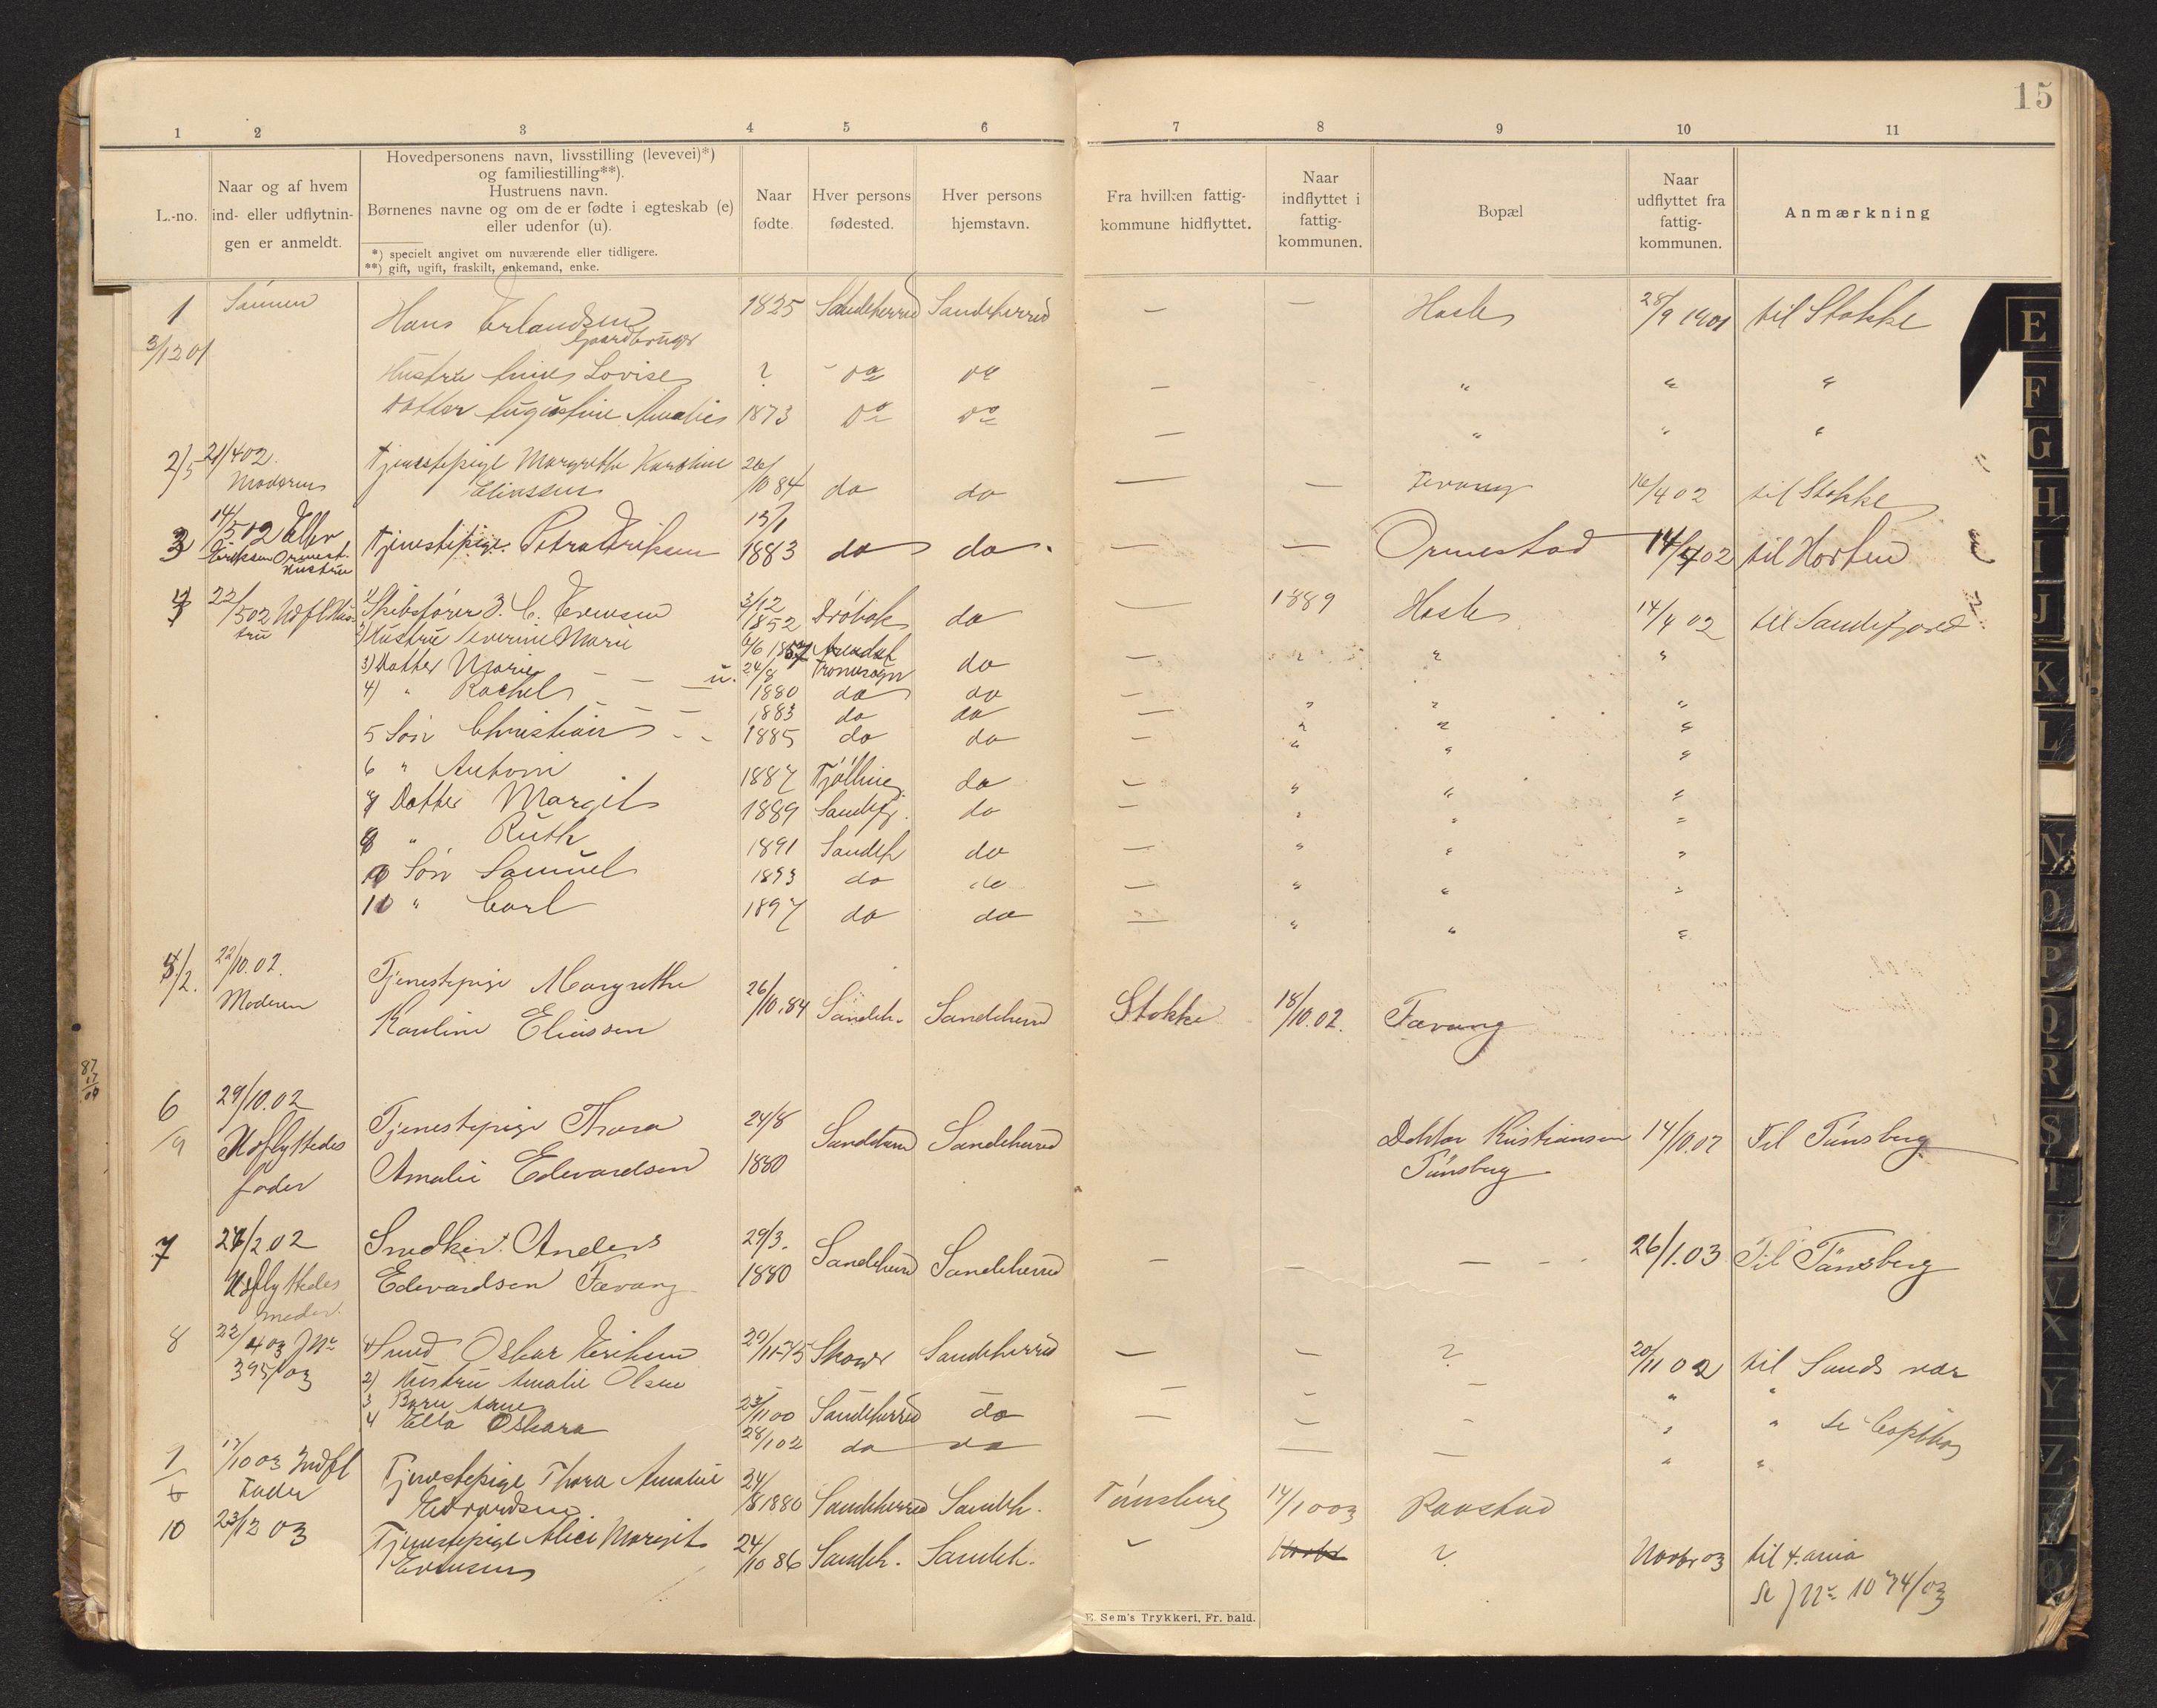 15
1 2 3 4 5 6 7 8 9 10 11
L.-no.
Naar og af hvem
ind- eller udflytnin-
gen er anmeldt.
Hovedpersonens navn, livsstilling (levevei)*)
og familiestilling**).
Hustruens navn.
Børnenes navne og om de er fødte i egteskab (e)
eller udenfor (u).
*) specielt angivet om nuværende eller tidligere.
**) gift, ugift, fraskilt, enkemand, enke.
Naar
fødte.
Hver persons
fødested.
Hver persons
hjemstavn.
Fra hvilken fattig-
kommune hidflyttet.
Naar
indflyttet i
fattig-
kommunen.
Bopæl
Naar
udflyttet fra
fattig-
kommunen.
Anmærkning
1 Sønnen Hans Erlandsen 1825 Sandeherred Sandeherred — — Hasle 28/9 1901 til Stokke
3/12 01 Gaardbruger
Hustru Lovise ? do do — " " "
Datter Augustine Amalie 1873 do do — " " "
2/5 21/4 02. Tjenestepige Margrethe Karoline 26/10 84 do do — — Fevang 16/4 02 til Stokke
Moderen Eliassen
3 14/5 02 Tjenestepige Petra Eriksen 13/1 1883 do do — — Ormestad 14/5 02 til Horten
Eriksen Ormest. Hustru
4 22/5 02 Udfl Hus- 1) Skibsfører J. C. Evensen 3/12 1852 Drøbak do — 1889 Hasle 14/4 02 til Sandefjord
tru 2) Hustru Severine Marie 6/6 1857
3) Datter Marie — — u. 24/8 1880 Tromøsogn do — " " "
4) " Rachel — — — 1883 do do —
5 Søn Christian - - 1885 do do — " " "
6 " Anton 1887 Tjølling do — " " "
7 Datter Margit 1889 Sandefj. do — " " "
8 " Ruth 1891 Sandeh do — " " "
9 Søn Samuel 1893 do do — " " "
10 " Carl 1897 do do — " " "
5/2. 22/10.02. Tjenestepige Margrethe 26/10.84 Sandeh. Sandeherred Stokke 18/10.02. Fevang
Moderen Karoline Eliassen
6/9 29/10.02 Tjenestepige Thora 24/8 Sandeherred Sandeherred Doktor Kristiansen 14/10.02 Til Tønsberg
Udflyttedes Amalie Edvardsen 1880 Tønsberg
fader
7 27/2 02 Snedker Anders 29/3. Sandeherred Sandeherred — — — 26/1.03 Til Tønsberg
Udflyttedes Edvardsen Fævang 1880
moder.
8 22/4 03 J No 1) Smed Oskar Eriksen 29/11-75 Skouer Sandeherred — — ? 20/11 02 til Sandsvær
395/03 2) Hustru Amalie Olsen — — — " "
3 Børn 23/11 00 Sandeherred do — — — " " se
4 Ella Oskara 28/1 02 do do — — " "
1/6 17/10 03 Indfl Tjenestepige Thora Amalie 24/8 1880 Sandeherred Sandeh. Tønsberg 14/10 03 Ravstad
Fader Edvardsen
10 23/12 03 Tjenestepige Alice Margit 24/10 86 Sandeh. Sandeh. ? Novbr 03 til Xania
Evensen se J No 1074/03
E. Sem's Trykkeri, Fr. hald.
E
F
G
H
I
J
K
L
N
O
P
Q
R
S
T
U
V
X
Y
Z
Ø